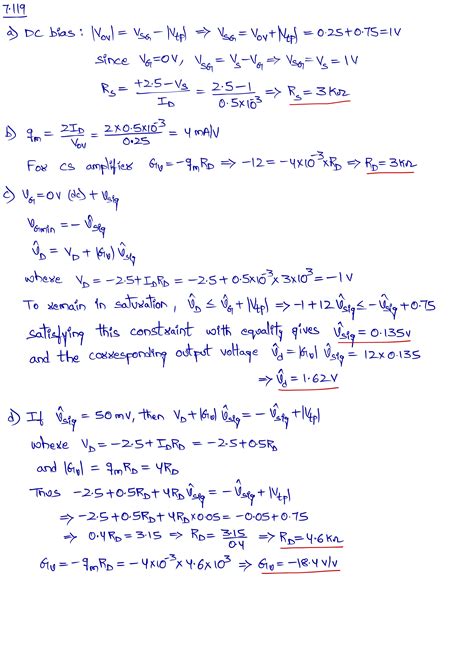 7.119
a) DC bias : |Vov| = VSG - |Vtp| ⇒ VSG = Vov + |Vtp| = 0.25 + 0.75 = 1V
since VG = 0V, VSG = VS - VG ⇒ VSG = VS = 1V
RS = +2.5 - VS / ID = 2.5 - 1 / 0.5×10^-3 ⇒ RS = 3KΩ
b) gm = 2ID / Vov = 2×0.5×10^-3 / 0.25 = 4 mA/V
For CS amplifier Gv = -gmRD ⇒ -12 = -4×10^-3×RD ⇒ RD = 3KΩ
c) vG = 0V (dc) + vsig
vGmin = - v̂sig
v̂D = VD + |Gv| v̂sig
where VD = -2.5 + IDRD = -2.5 + 0.5×10^-3×3×10^3 = -1V
To remain in saturation, v̂D ≤ v̂G + |Vtp| ⇒ -1 + 12 v̂sig ≤ - v̂sig + 0.75
satisfying this constraint with equality gives v̂sig = 0.135V
and the corresponding output voltage v̂d = |Gv| v̂sig = 12×0.135
⇒ v̂d = 1.62V
d) If v̂sig = 50mV, then VD + |Gv| v̂sig = - v̂sig + |Vtp|
where VD = -2.5 + IDRD = -2.5 + 0.5RD
and |Gv| = gmRD = 4RD
Thus -2.5 + 0.5RD + 4RD v̂sig = - v̂sig + |Vtp|
⇒ -2.5 + 0.5RD + 4RD×0.05 = -0.05 + 0.75
⇒ 0.4RD = 3.15 ⇒ RD = 3.15 / 0.4 ⇒ RD = 4.6KΩ
Gv = -gmRD = -4×10^-3×4.6×10^3 ⇒ Gv = -18.4 V/V